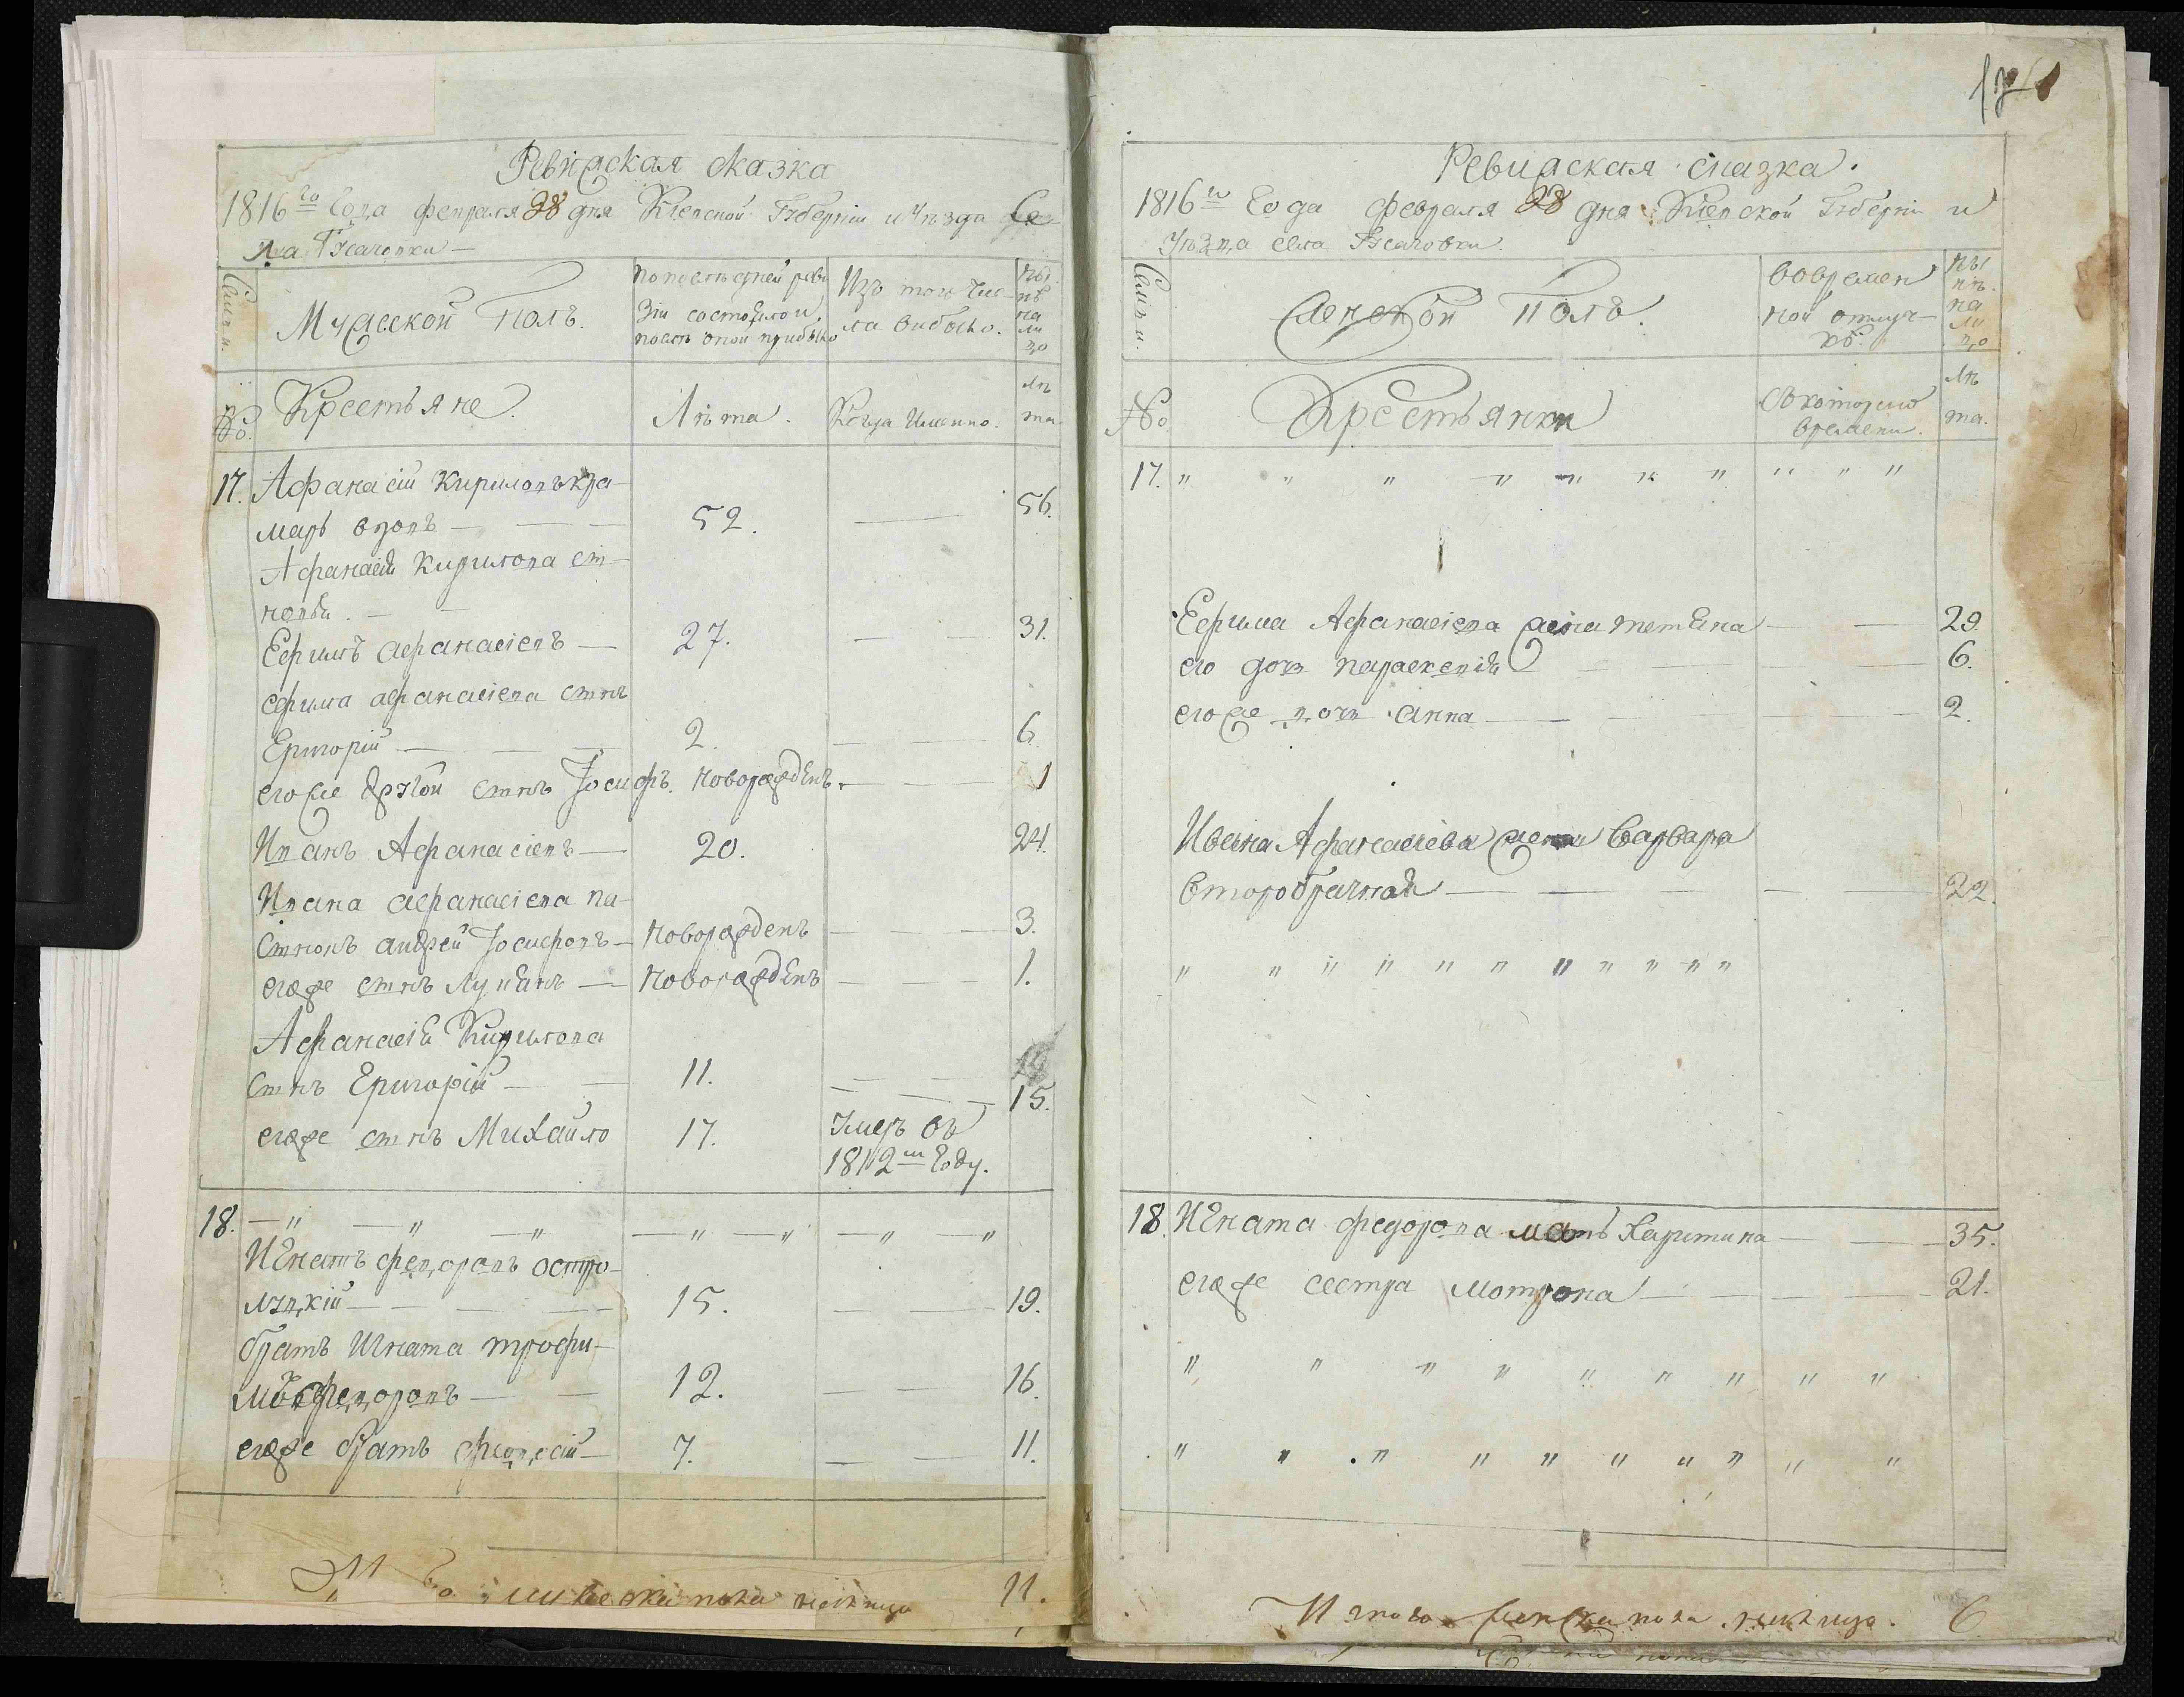 Ревизская сказка
1816го Года февраля 28 дня Киевской Губернiи и Уезда Се-
ла Гусачовки
Семьи.
Мужеской Полъ.
По последней реви
зiи состояло и
после оной прибыло
Изъ того чис-
ла выбыло.
Ны
не
на
ли
цо
№.
Крестьяне.
Лѣта.
Когда Именно.
Лѣ
та.
17. Афанасiй Кириловъ кра-
маръ вдовъ 52. 56.
Афанасiя Кирилова сы-
новья.
Ефимъ афанасiевъ 27. 31.
ефима афанасiева сынъ
Григорiй 2. 6
егоже другой сынъ Iосифъ. новорожденъ. 1
Иванъ Афанасiевъ 20. 24.
Ивана афанасiева па-
сынокъ андрей Iосифовъ новорожденъ 3.
егоже сынъ Лукянъ новорожденъ 1.
Афанасiя Кирилова
сынъ Григорiй 11. 15.
егоже сынъ Михайло 17. Умеръ въ
1812м Году.
18. " " " " " " "
Игнатъ федоровъ остро-
луцкiй 15. 19.
братъ Игната трофи-
мъ федоровъ 12. 16.
егоже братъ феодосiй 7. 11.
мужеска пола налицо 11.
Ревизская сказка.
1816го Года февраля 28 дня Киевской Губернiи и
Уезда села Гусачовки.
Семьи.
Женской Полъ.
Вовремен
ной отлуч-
кѣ.
Ны
не.
на
ли
цо
№.
Крестьянки
Съ котораго
времени.
Лѣ
та.
17. " " " " " " " " " "
Ефима Афанасiева жена тетяна 29.
его дочь параскевiя 6.
егоже дочь анна 2.
Ивана Афанасiева жена Варвара
второбрачная 22.
" " " " " " " " " " "
18. Игната федорова мать Харитина 35.
егоже сестра мотрона 21.
" " " " " " " " "
" " " " " " " " " "
Итого женска пола налицо. 6